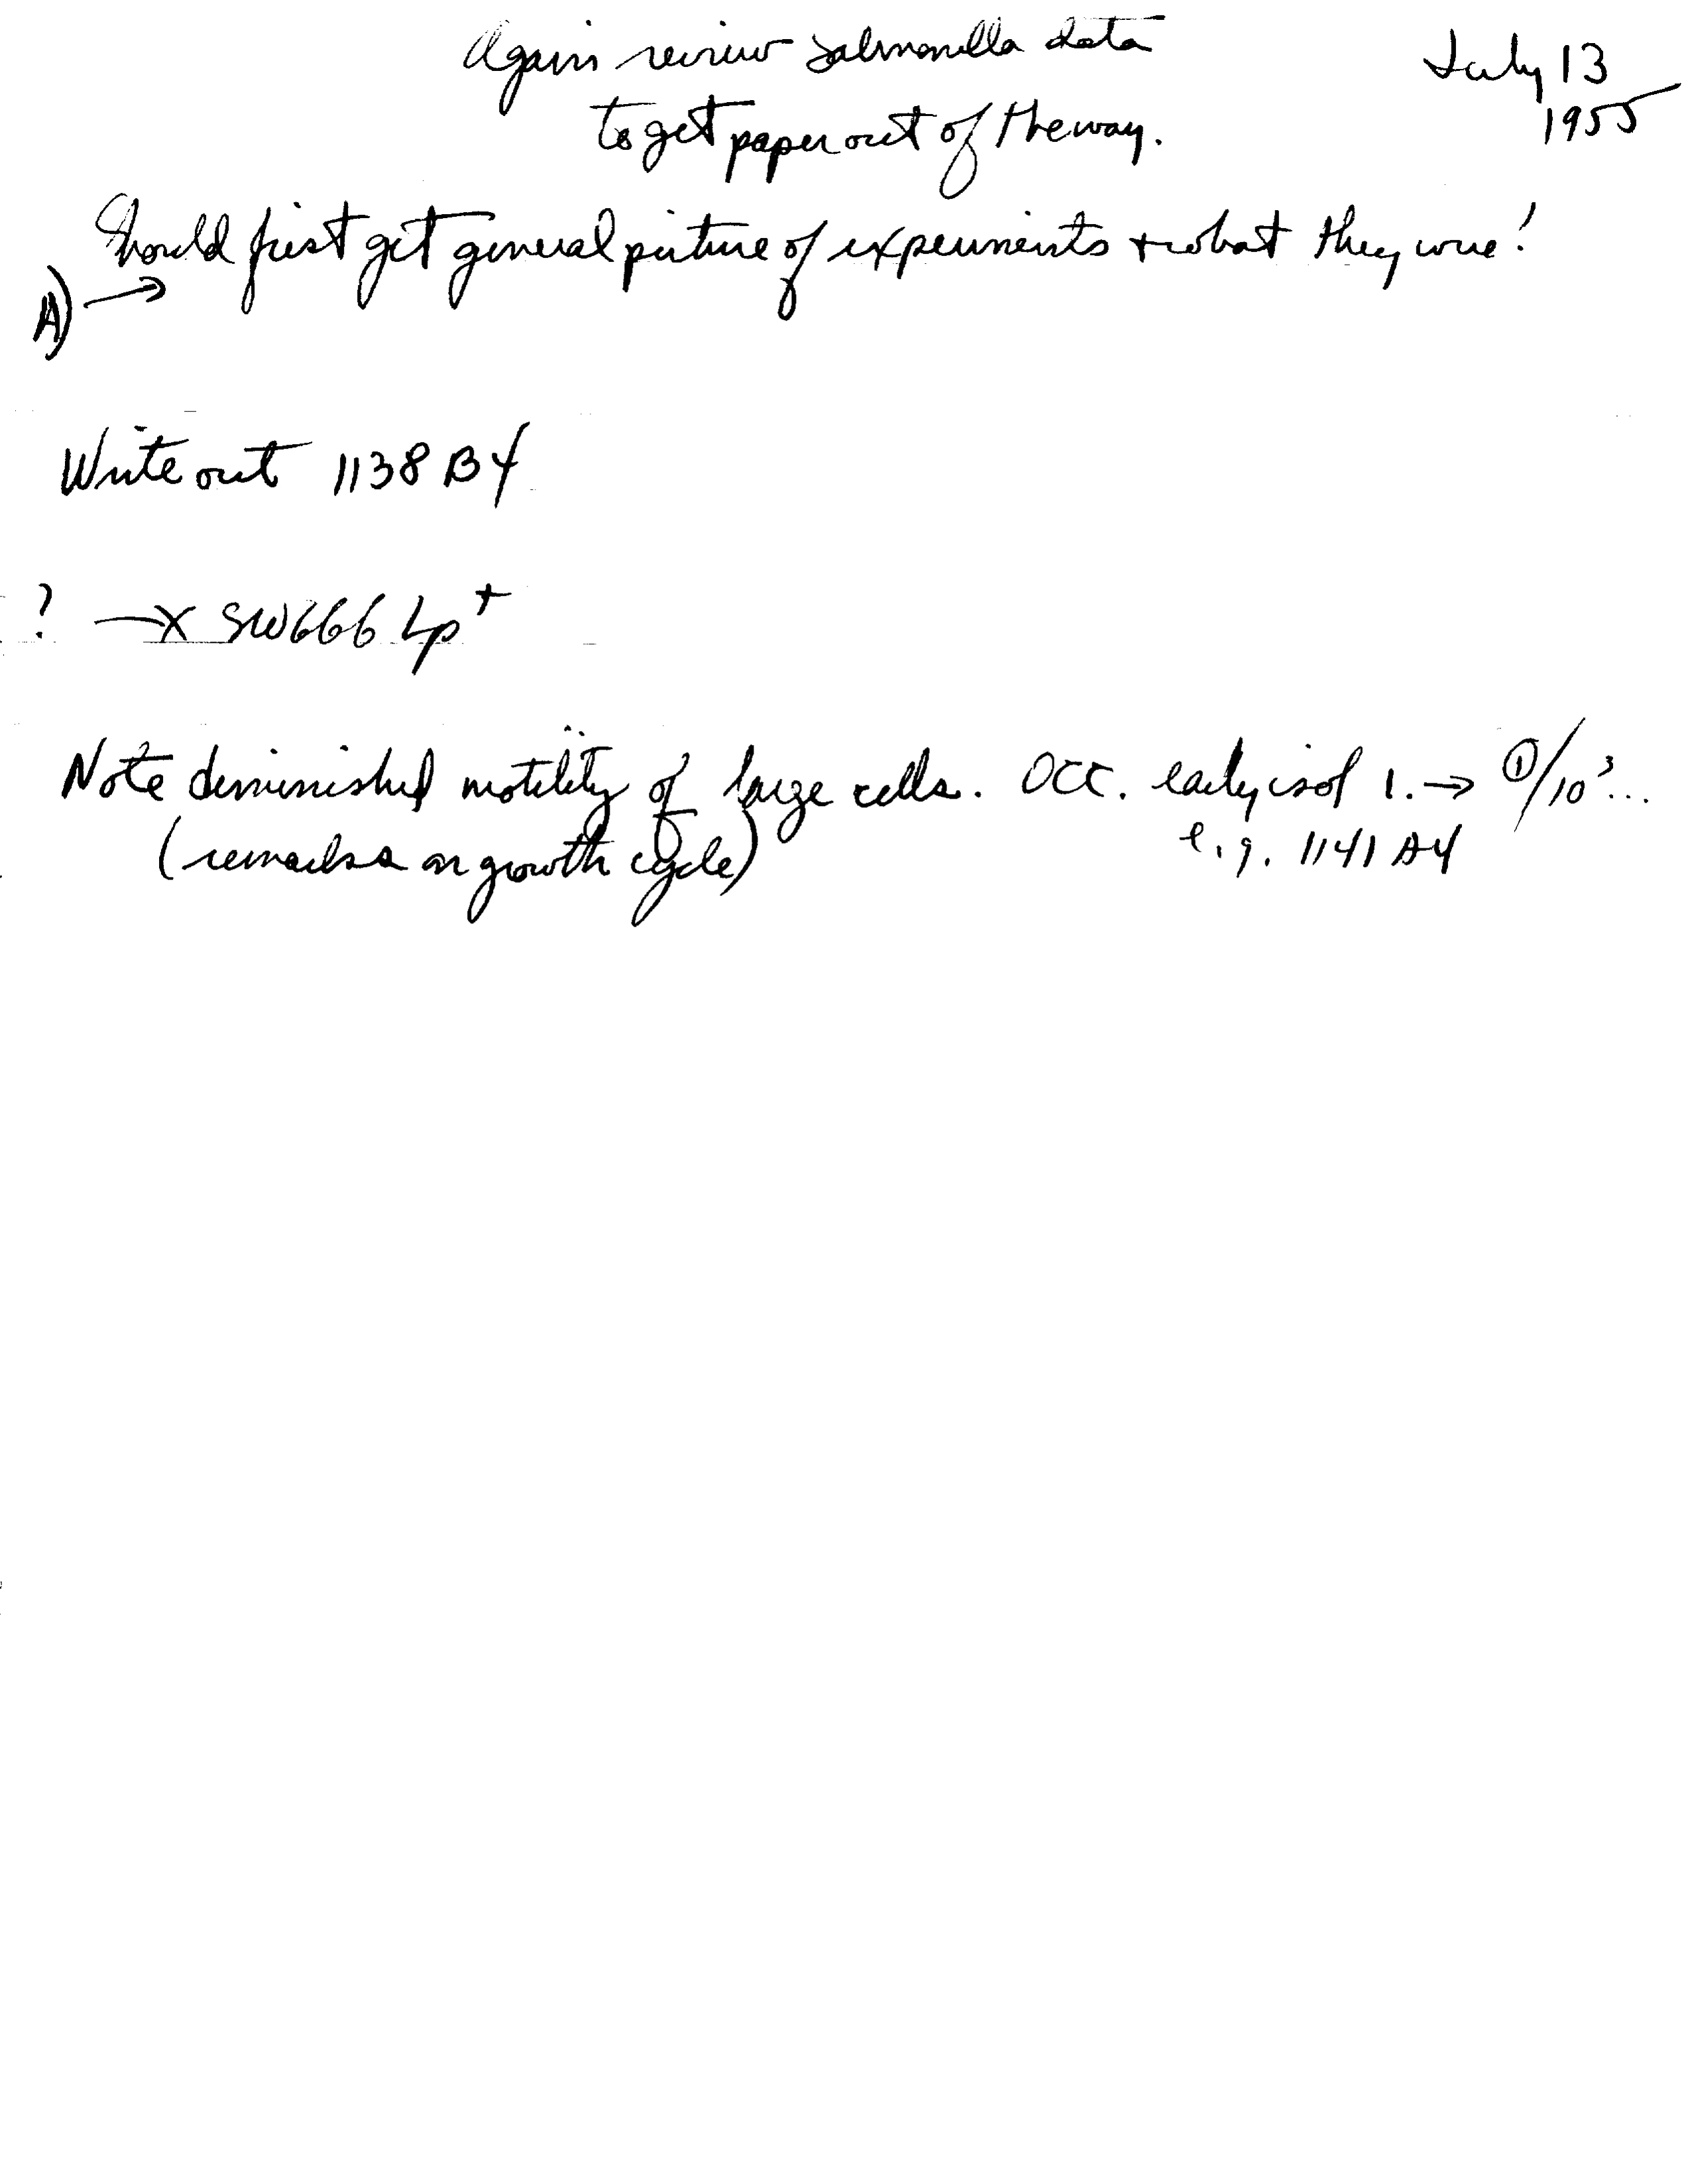 Again review Salmonella data
to get paper out of the way.
July 13
1955
Should first get general picture of experiments + what they were!
A) →
Write out 1138 B4
? —x SW666 Lp+
Note diminished motility of large cells. Occ. early isol 1. → ①/10³...
(remarks on growth cycle)
e.g. 1141 A4